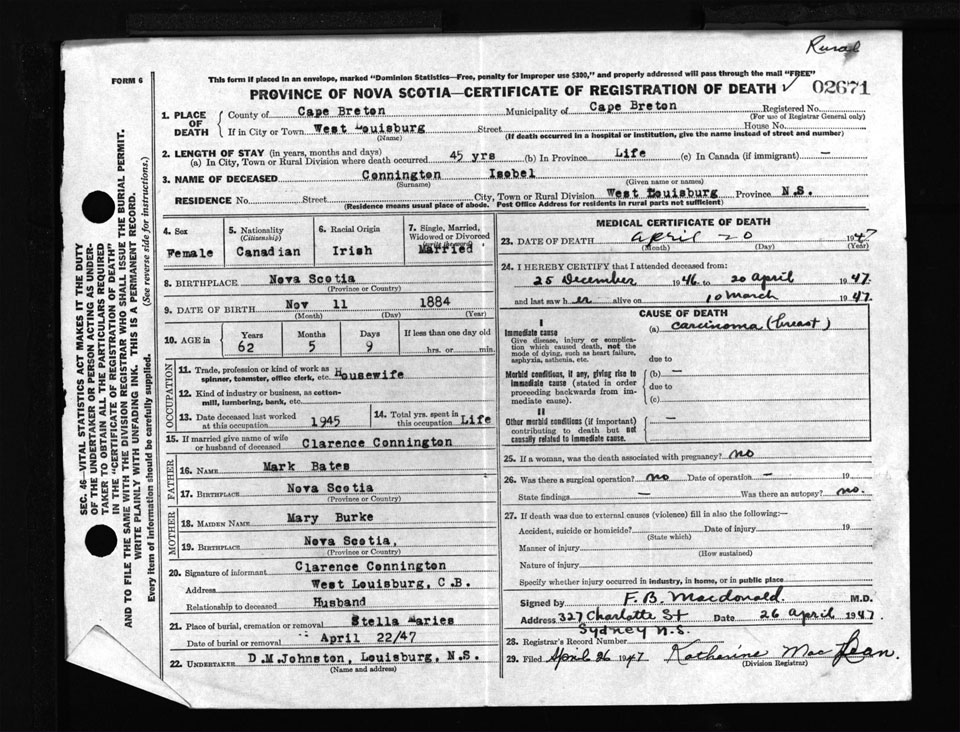 Rural
FORM 6
This form if placed in an envelope, marked "Dominion Statistics—Free, penalty for improper use $300," and properly addressed will pass through the mail "FREE"
PROVINCE OF NOVA SCOTIA—CERTIFICATE OF REGISTRATION OF DEATH ✓ 02671
SEC. 46—VITAL STATISTICS ACT MAKES IT THE DUTY
OF THE UNDERTAKER OR PERSON ACTING AS UNDER-
TAKER TO OBTAIN ALL THE PARTICULARS REQUIRED
IN THE "CERTIFICATE OF REGISTRATION OF DEATH"
AND TO FILE THE SAME WITH THE DIVISION REGISTRAR WHO SHALL ISSUE THE BURIAL PERMIT.
WRITE PLAINLY WITH UNFADING INK. THIS IS A PERMANENT RECORD.
Every item of information should be carefully supplied. (See reverse side for instructions.)
1. PLACE OF DEATH
County of Cape Breton Municipality of Cape Breton Registered No.
(For use of Registrar General only)
If in City or Town West Louisburg Street House No.
(Name) (If death occurred in a hospital or institution, give the name instead of street and number)
2. LENGTH OF STAY (in years, months and days)
(a) In City, Town or Rural Division where death occurred 45 yrs (b) In Province Life (c) In Canada (if immigrant) —
3. NAME OF DECEASED Connington Isobel
(Surname) (Given name or names)
RESIDENCE No. Street City, Town or Rural Division West Louisburg Province N.S.
(Residence means usual place of abode. Post Office Address for residents in rural parts not sufficient)
4. Sex
Female
5. Nationality
(Citizenship)
Canadian
6. Racial Origin
Irish
7. Single, Married,
Widowed or Divorced
(write the word)
Married
8. BIRTHPLACE Nova Scotia
(Province or Country)
9. DATE OF BIRTH Nov 11 1884
(Month) (Day) (Year)
10. AGE in
Years Months Days If less than one day old
62 5 9 hrs. or min.
OCCUPATION
11. Trade, profession or kind of work as
spinner, teamster, office clerk, etc. Housewife
12. Kind of industry or business, as cotton-
mill, lumbering, bank, etc.
13. Date deceased last worked
at this occupation 1945
14. Total yrs. spent in
this occupation Life
15. If married give name of wife
or husband of deceased Clarence Connington
FATHER
16. NAME Mark Bates
17. BIRTHPLACE Nova Scotia
(Province or Country)
MOTHER
18. MAIDEN NAME Mary Burke
19. BIRTHPLACE Nova Scotia,
(Province or Country)
20. Signature of informant Clarence Connington
Address West Louisburg, C.B.
Relationship to deceased Husband
21. Place of burial, cremation or removal Stella Maries
Date of burial or removal April 22/47
22. UNDERTAKER D.M.Johnston, Louisburg, N.S.
(Name and address)
MEDICAL CERTIFICATE OF DEATH
23. DATE OF DEATH April 20 1947
(Month) (Day) (Year)
24. I HEREBY CERTIFY that I attended deceased from:
25 December 1946 to 20 April 1947
and last saw her alive on 10 March 1947
CAUSE OF DEATH
I
Immediate cause (a) carcinoma (breast)
Give disease, injury or complica-
tion which caused death, not the
mode of dying, such as heart failure,
asphyxia, asthenia, etc. due to
Morbid conditions, if any, giving rise to (b) —
immediate cause (stated in order due to
proceeding backwards from im-
mediate cause). (c)
II
Other morbid conditions (if important) —
contributing to death but not
causally related to immediate cause.
25. If a woman, was the death associated with pregnancy? no
26. Was there a surgical operation? no Date of operation — 19
State findings — Was there an autopsy? no.
27. If death was due to external causes (violence) fill in also the following:—
Accident, suicide or homicide? Date of injury 19
(State which)
Manner of injury
(How sustained)
Nature of injury
Specify whether injury occurred in industry, in home, or in public place
Signed by F. B. Macdonald. M.D.
Address 327 Charlotte St Date 26 April 1947
Sydney N.S.
28. Registrar's Record Number
29. Filed April 26 1947 Katherine MacLean.
(Division Registrar)